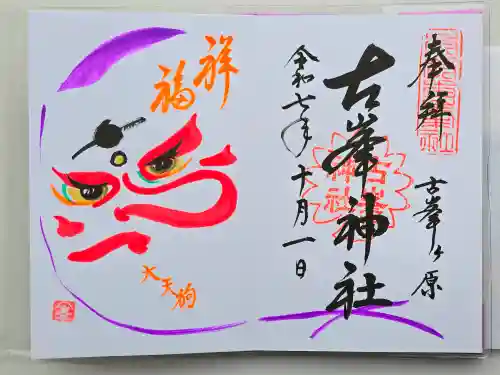 奉拝
古峯ヶ原
古峯神社
古峯
神社
令和七年十月一日
祥福
大天狗